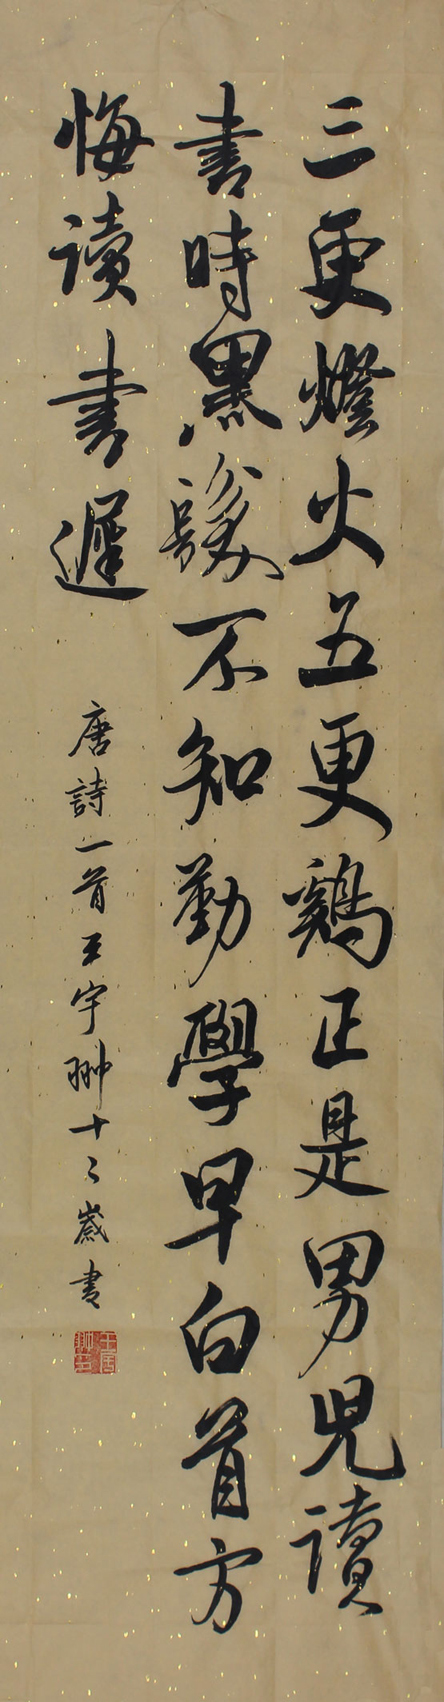 三更燈火五更鷄正是男兒讀
書時黑髮不知勤學早白首方
悔讀書遲
唐詩一首王宇翀十二歲書